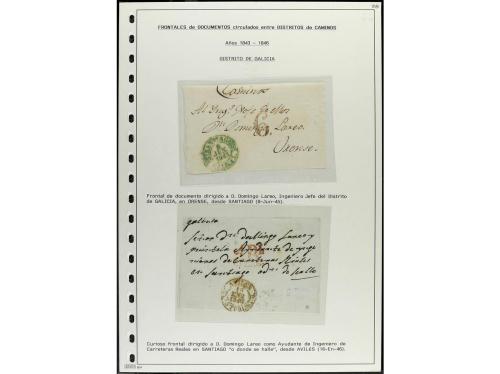 FRONTALES de DOCUMENTOS circulados entre DISTRITOS de CAMINOS
Años 1843 - 1846
DISTRITO DE GALICIA
Caminos
Al Ing.º Jefe
Dn. Domingo Lareo
Orense.
Frontal de documento dirigido a D. Domingo Lareo, Ingeniero Jefe del Distrito
de GALICIA, en ORENSE, desde SANTIAGO (8-Jun-45).
Señor Dn. Domingo Lareo
Ayudante de
Carreteras Reales
en Santiago o donde se halle
Curioso frontal dirigido a D. Domingo Lareo como Ayudante de Ingeniero de
Carreteras Reales en SANTIAGO "o donde se halle", desde AVILES (16-En-46).